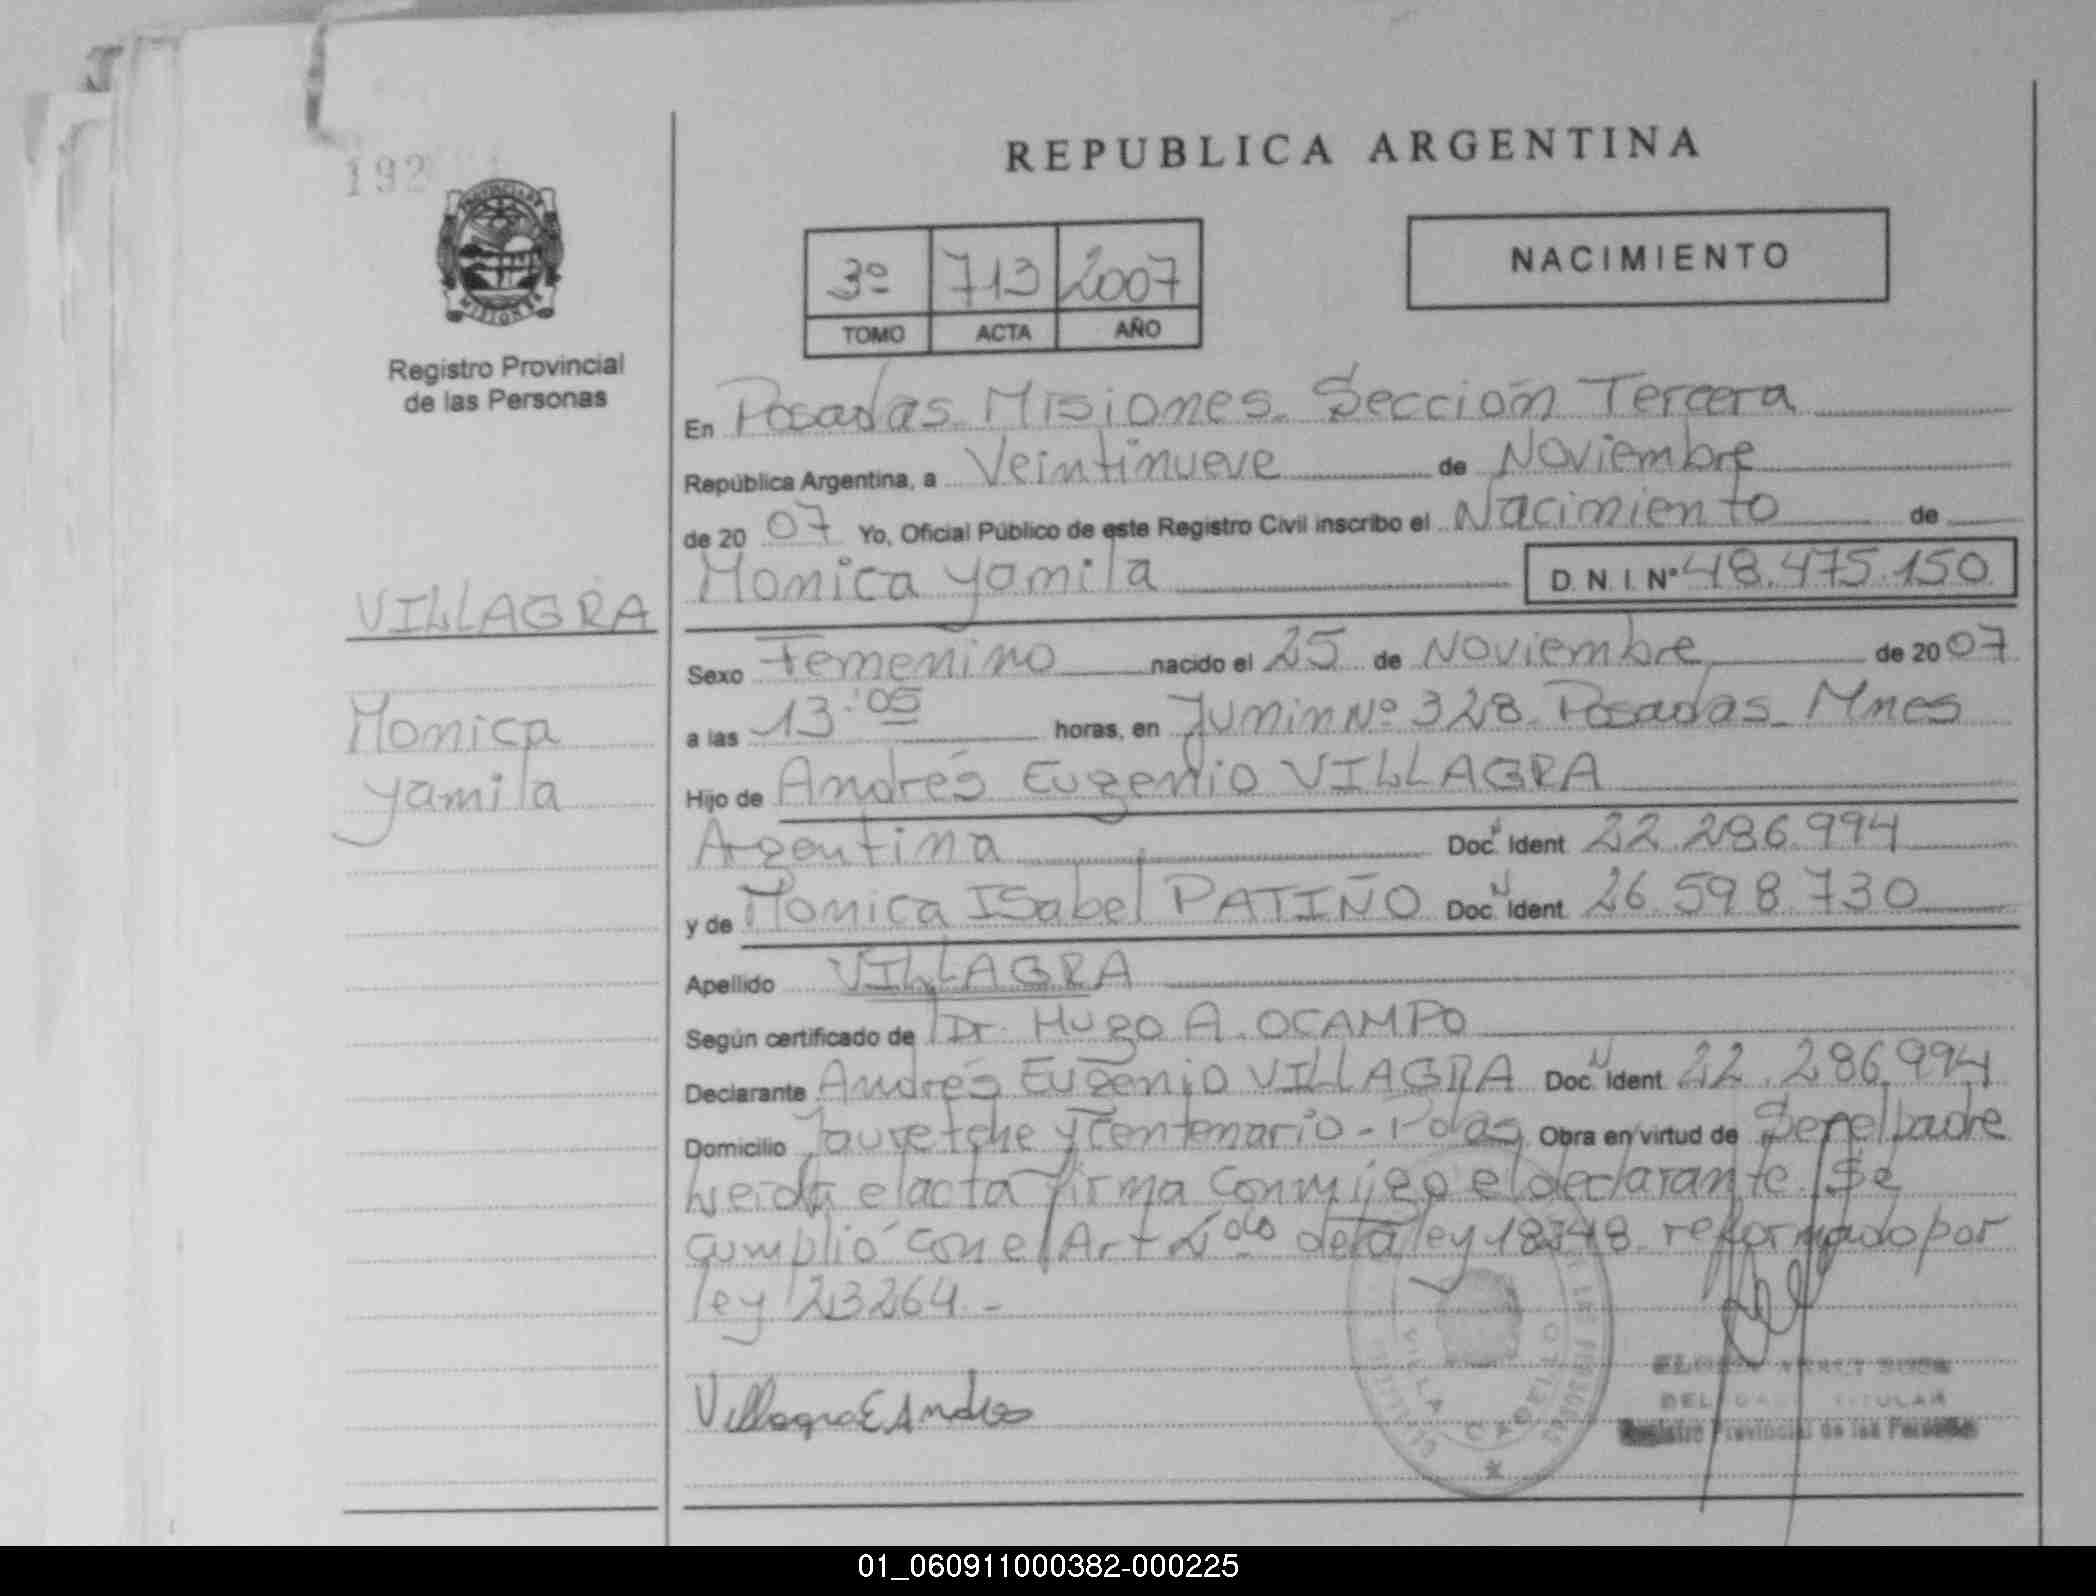 REPUBLICA ARGENTINA
192
PROVINCIA DE
MISIONES
Registro Provincial
de las Personas
3º 713 2007
TOMO ACTA AÑO
NACIMIENTO
En Posadas Misiones Sección Tercera
República Argentina, a Veintinueve de Noviembre
de 20 07 Yo, Oficial Público de este Registro Civil inscribo el Nacimiento de
Monica Yamila D. N. I. Nº 48.475.150
VILLAGRA
Monica
Yamila
Sexo Femenino nacido el 25 de Noviembre de 20 07
a las 13:05 horas, en Junin Nº 328 Posadas Mnes
Hijo de Andrés Eugenio VILLAGRA
Argentina Doc. N Ident 22.286.994
y de Monica Isabel PATIÑO Doc. N Ident 26.598.730
Apellido VILLAGRA
Según certificado de Dr. Hugo A. OCAMPO
Declarante Andrés Eugenio VILLAGRA Doc. N Ident 22.286.994
Domicilio Jauretche y Centenario - Pdas Obra en virtud de Ser el padre
Leída el acta firma conmigo el declarante. Se
cumplió con el Art 2do de la ley 18248 reformado por
ley 23264.-
Villagra E Andres
VILLA CABELLO
TITULAR
Registro Provincial de las Personas
01_060911000382-000225